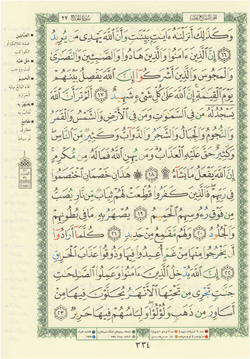 وَكَذَٰلِكَ أَنزَلْنَٰهُ ءَايَٰتٍۭ بَيِّنَٰتٍ وَأَنَّ ٱللَّهَ يَهْدِى مَن يُرِيدُ
﴿١٦﴾ إِنَّ ٱلَّذِينَ ءَامَنُوا۟ وَٱلَّذِينَ هَادُوا۟ وَٱلصَّٰبِـِٔينَ وَٱلنَّصَٰرَىٰ
وَٱلْمَجُوسَ وَٱلَّذِينَ أَشْرَكُوٓا۟ إِنَّ ٱللَّهَ يَفْصِلُ بَيْنَهُمْ
يَوْمَ ٱلْقِيَٰمَةِ إِنَّ ٱللَّهَ عَلَىٰ كُلِّ شَىْءٍ شَهِيدٌ ﴿١٧﴾ أَلَمْ تَرَ أَنَّ ٱللَّهَ
يَسْجُدُ لَهُۥ مَن فِى ٱلسَّمَٰوَٰتِ وَمَن فِى ٱلْأَرْضِ وَٱلشَّمْسُ وَٱلْقَمَرُ
وَٱلنُّجُومُ وَٱلْجِبَالُ وَٱلشَّجَرُ وَٱلدَّوَآبُّ وَكَثِيرٌ مِّنَ ٱلنَّاسِ
وَكَثِيرٌ حَقَّ عَلَيْهِ ٱلْعَذَابُ وَمَن يُهِنِ ٱللَّهُ فَمَا لَهُۥ مِن مُّكْرِمٍ
إِنَّ ٱللَّهَ يَفْعَلُ مَا يَشَآءُ ۩ ﴿١٨﴾ هَٰذَانِ خَصْمَانِ ٱخْتَصَمُوا۟
فِى رَبِّهِمْ فَٱلَّذِينَ كَفَرُوا۟ قُطِّعَتْ لَهُمْ ثِيَابٌ مِّن نَّارٍ يُصَبُّ
مِن فَوْقِ رُءُوسِهِمُ ٱلْحَمِيمُ ﴿١٩﴾ يُصْهَرُ بِهِۦ مَا فِى بُطُونِهِمْ
وَٱلْجُلُودُ ﴿٢٠﴾ وَلَهُم مَّقَٰمِعُ مِنْ حَدِيدٍ ﴿٢١﴾ كُلَّمَآ أَرَادُوٓا۟
أَن يَخْرُجُوا۟ مِنْهَا مِنْ غَمٍّ أُعِيدُوا۟ فِيهَا وَذُوقُوا۟ عَذَابَ ٱلْحَرِيقِ
﴿٢٢﴾ إِنَّ ٱللَّهَ يُدْخِلُ ٱلَّذِينَ ءَامَنُوا۟ وَعَمِلُوا۟ ٱلصَّٰلِحَٰتِ
جَنَّٰتٍ تَجْرِى مِن تَحْتِهَا ٱلْأَنْهَٰرُ يُحَلَّوْنَ فِيهَا مِنْ
أَسَاوِرَ مِن ذَهَبٍ وَلُؤْلُؤًا وَلِبَاسُهُمْ فِيهَا حَرِيرٌ ﴿٢٣﴾
٣٣٤